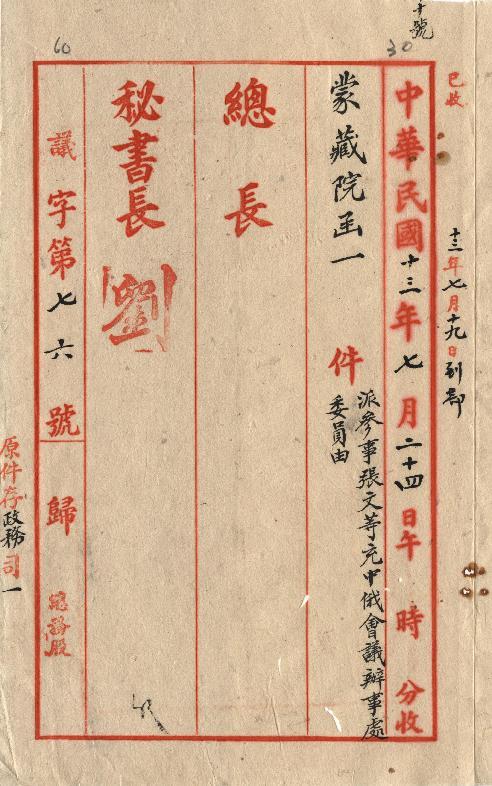 十號
已收
十三年七月十九日到部
30
中華民國十三年七月二十四日午 時 分收
蒙藏院函一 件
派參事張文等充中俄會議辦事處
委員由
總 長
秘書長 劉
60
議字第七六號 歸 總務股
原件存政務司一